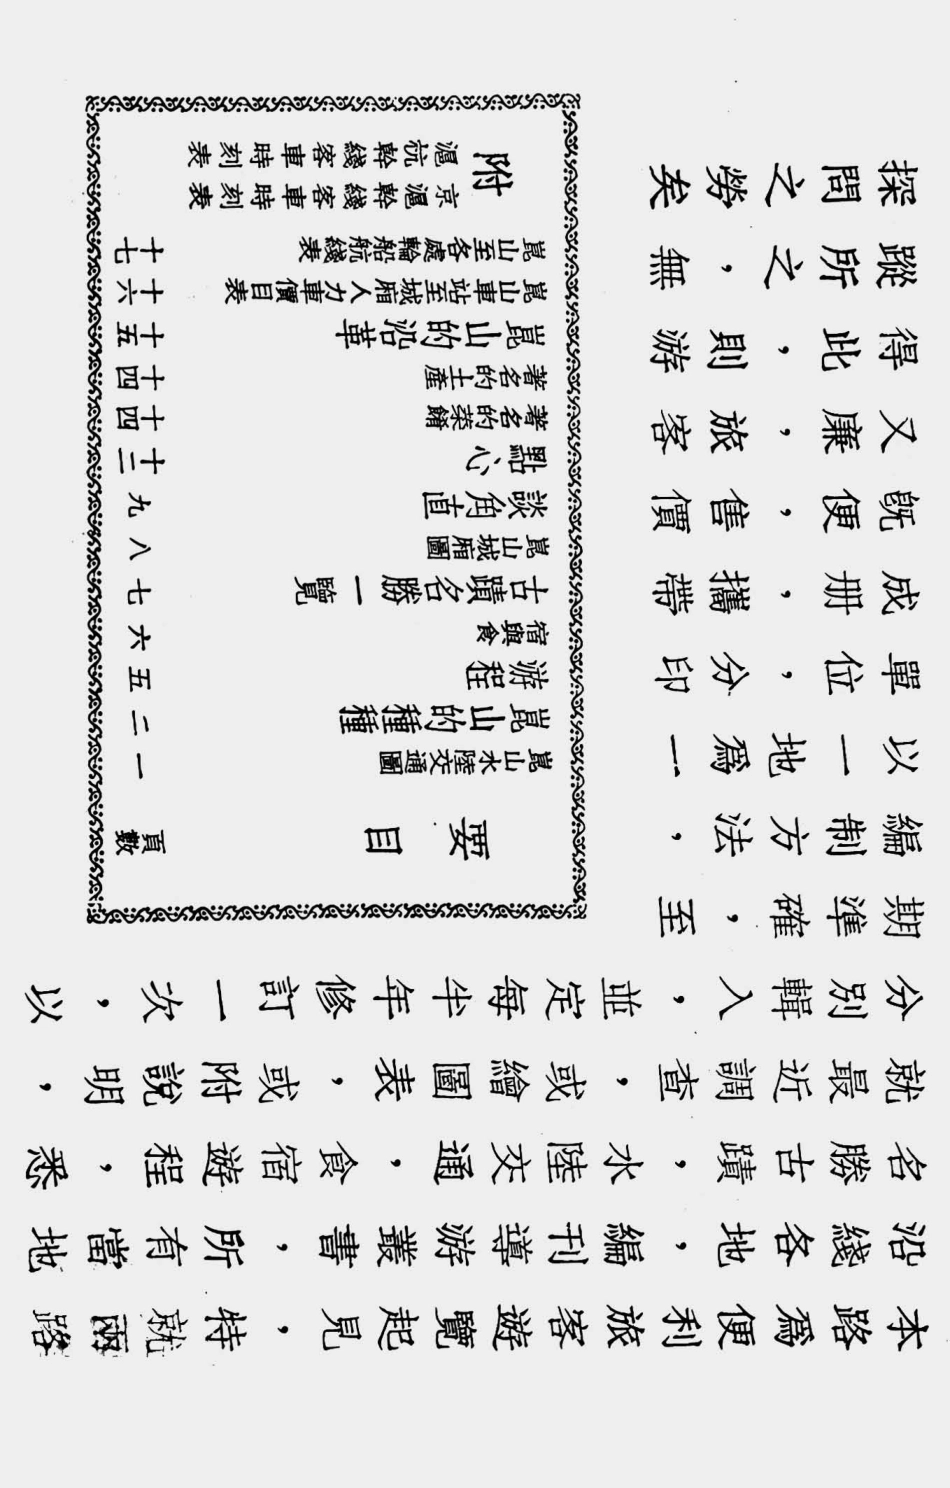 本路爲便利旅客遊覽起見，特就兩路
沿綫各地，編刊導游叢書，所有當地
名勝古蹟，水陸交通，食宿遊程，悉
就最近調查，或繪圖表，或附說明，
分別輯入，並定每半年修訂一次，以
期準確，至
編制方法，
以一地爲一
單位，分印
成册，攜帶
旣便，售價
又廉，旅客
得此，則游
蹤所之，無
探問之勞矣
要目 頁數
崑山水陸交通圖 一
崑山的種種 二
游程 五
宿與食 六
古蹟名勝一覽 七
崑山城廂圖 八
談角直 九
點心 十三
著名的菜餚 十四
著名的土產 十四
崑山的沿革 十五
崑山車站至城廂人力車價目表 十六
崑山至各處輪船航綫表 十七
附
京滬幹綫客車時刻表
滬杭幹綫客車時刻表